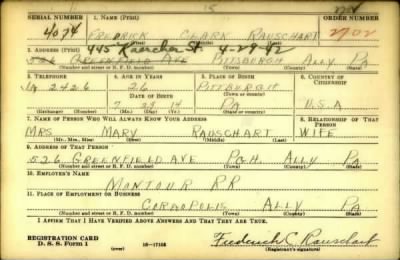 SERIAL NUMBER 1. NAME (Print) ORDER NUMBER
4074 FREDRICK CLARK RAUSCHART 2702
(First) (Middle) (Last)
445 Kaercher St. 4-28-42
2. ADDRESS (Print)
526 GREENFIELD AVE PITTSBURGH ALLY PA
(Number and street or R. F. D. number) (Town) (County) (State)
3. TELEPHONE 4. AGE IN YEARS 5. PLACE OF BIRTH 6. COUNTRY OF CITIZENSHIP
2426 26 PITTSBURGH
DATE OF BIRTH
7 23 14 PA U.S.A
(Exchange) (Number) (Mo.) (Day) (Yr.) (State or country)
7. NAME OF PERSON WHO WILL ALWAYS KNOW YOUR ADDRESS 8. RELATIONSHIP OF THAT PERSON
MRS MARY RAUSCHART WIFE
(Mr., Mrs., Miss) (First) (Middle) (Last)
9. ADDRESS OF THAT PERSON
526 GREENFIELD AVE PGH ALLY PA
(Number and street or R. F. D. number) (Town) (County) (State)
10. EMPLOYER'S NAME
MONTOUR RR
11. PLACE OF EMPLOYMENT OR BUSINESS
CORAOPOLIS ALLY PA
(Number and street or R. F. D. number) (Town) (County) (State)
I AFFIRM THAT I HAVE VERIFIED ABOVE ANSWERS AND THAT THEY ARE TRUE.
REGISTRATION CARD
D. S. S. Form 1 (over) 16-17105
Frederick C Rauschart
(Registrant's signature)